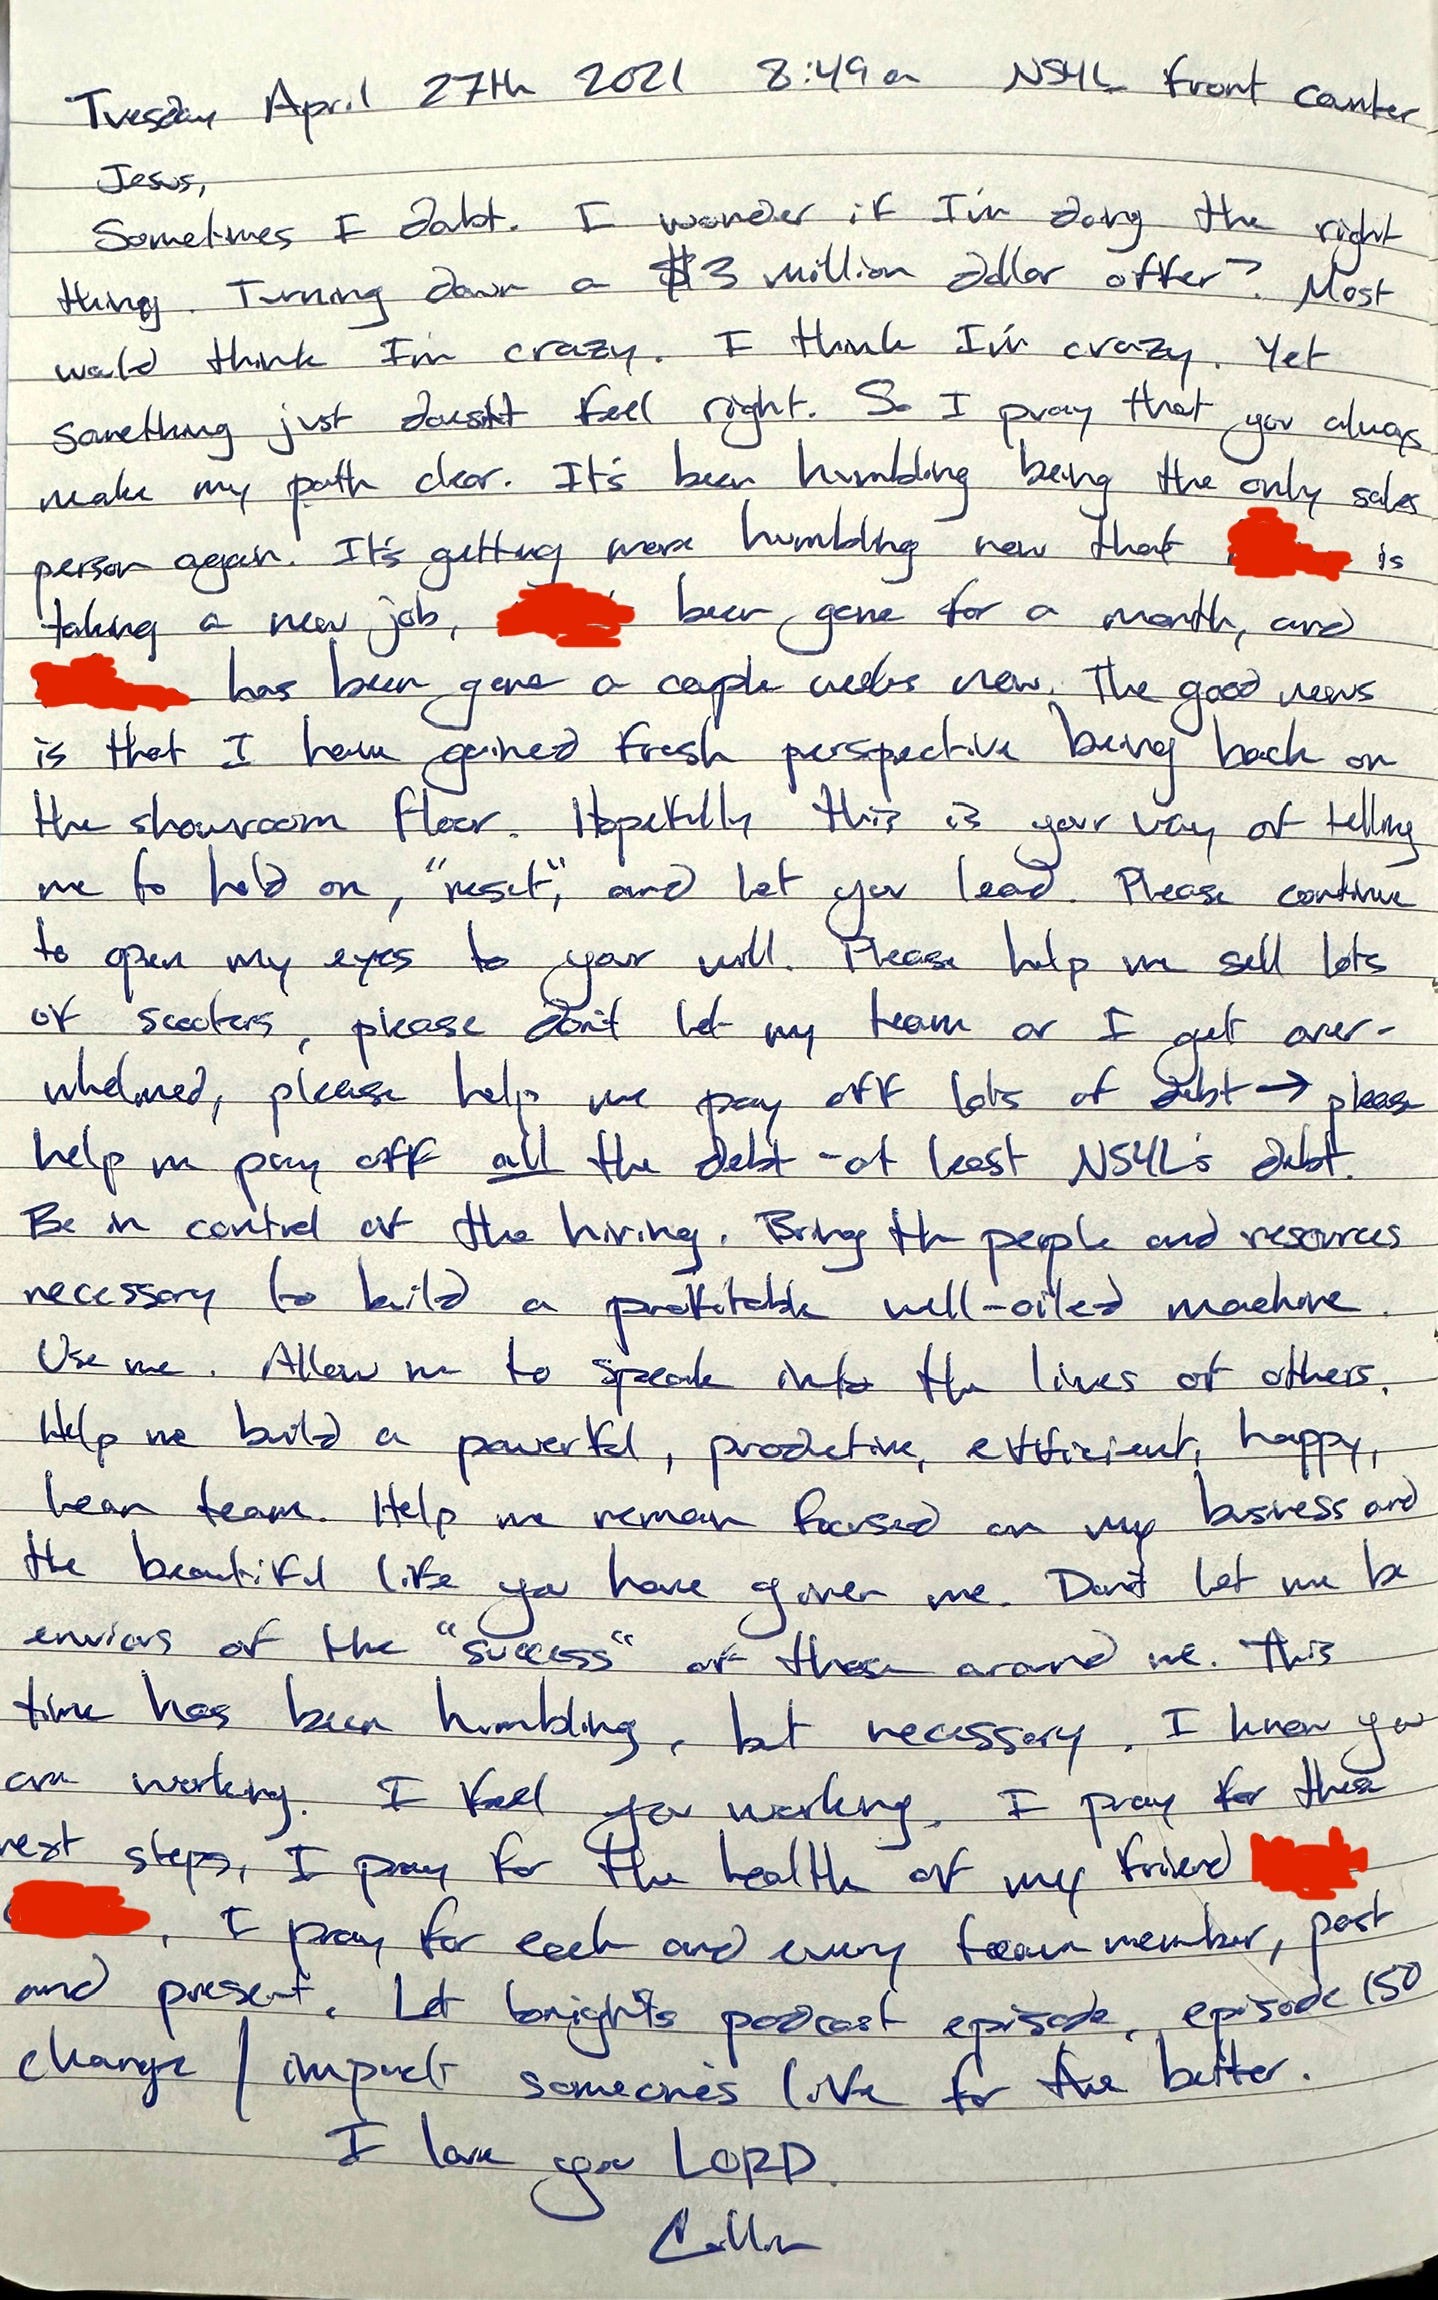 Tuesday April 27th 2021 8:49a NSYL front counter
Jesus,
Sometimes I doubt. I wonder if I'm doing the right
thing. Turning down a $3 million dollar offer? Most
would think I'm crazy. I think I'm crazy. Yet
something just doesn't feel right. So I pray that you always
make my path clear. It's been humbling being the only sales
person again. It's getting more humbling now that is
taking a new job, been gone for a month, and
has been gone a couple weeks now. The good news
is that I have gained fresh perspective being back on
the showroom floor. Hopefully this is your way of telling
me to hold on, "reset", and let you lead. Please continue
to open my eyes to your will. Please help me sell lots
of scooters, please don't let my team or I get over-
whelmed, please help me pay off lots of debt → please
help me pay off all the debt - at least NSYL's debt.
Be in control of the hiring. Bring the people and resources
necessary to build a profitable well-oiled machine.
Use me. Allow me to speak into the lives of others.
Help me build a powerful, productive, efficient, happy,
lean team. Help me remain focused on my business and
the beautiful life you have given me. Don't let me be
envious of the "success" of those around me. This
time has been humbling, but necessary. I know you
are working. I feel you working. I pray for these
next steps, I pray for the health of my friend
, I pray for each and every team member, past
and present. Let tonight's podcast episode, episode 150
change / impact someone's life for the better.
I love you LORD.